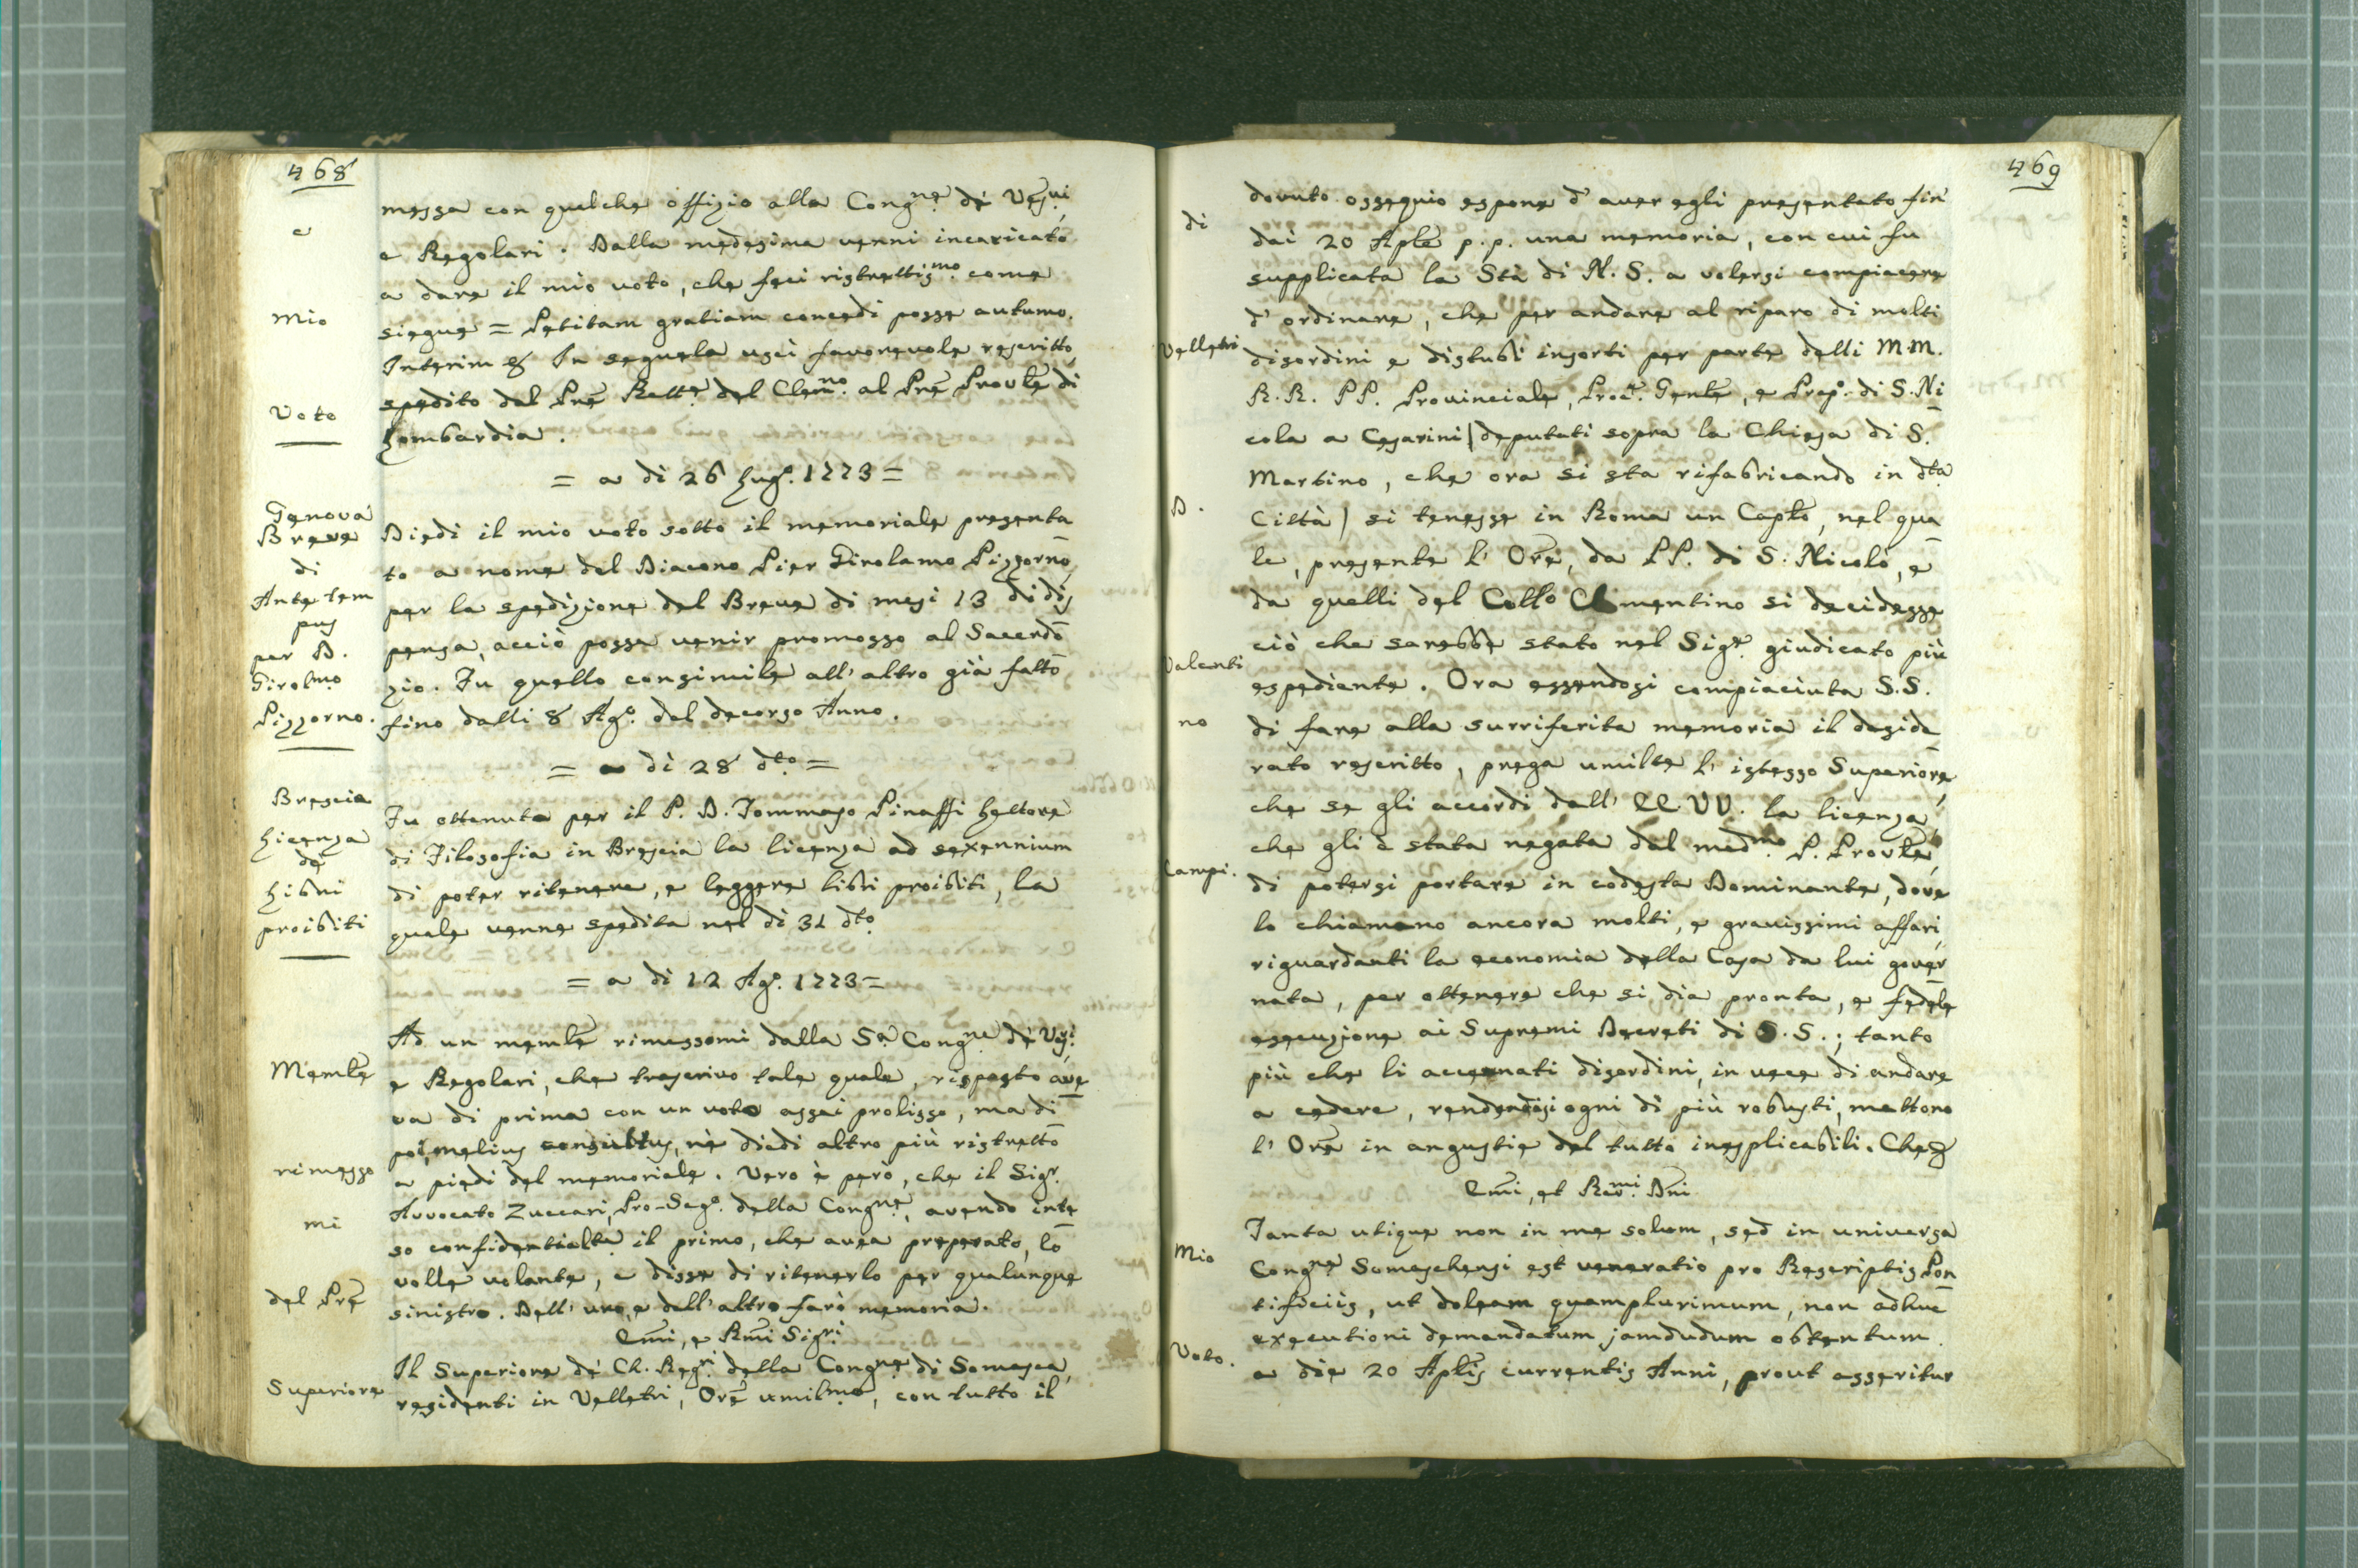 468
e
mio
Voto
messa con qualche offizio alla Congne de Vescvi
e Regolari. Dalla medesima venni incaricato
a dare il mio voto, che feci ristrettismo come
siegue = Petitam gratiam concedi posse autumo.
Interim &. In seguela uscì favorevole rescritto
spedito dal Pre Rette del Clemno. al Pre Provle di
Lombardia.
= a di 26 Lugo. 1773 =
Genova
Breve
di
Ante tem
pus
per D.
Girolmo
Pizzorno.
Diedi il mio voto sotto il memoriale presenta
to a nome del Diacono Pier Girolamo Pizzorno
per la spedizione del Breve di mesi 13 di dis
pensa, acciò possa venir promosso al Sacerdo
zio. Fu quello consimile all' altro già fatto
fino dalli 8 Ago. del decorso Anno.
= a dì 28 dto =
Brescia
Licenza
de
Libri
proibiti
Fu ottenuta per il P. D. Tommaso Pinaffi Lettore
di Filosofia in Brescia la licenza ad sexennium
di poter ritenere, e leggere libri proibiti, la
quale venne spedita nel dì 31 dto
= a dì 12 Ago. 1773 =
Memle
rimesso
mi
del Pre
Superiore
Ad un memle rimessomi dalla Sa Congne de Vescvi
e Regolari, che trascrivo tale quale, risposto ave
va di prima con un voto assai prolisso, ma di
poi, melius consultus, nè diedi altro più ristretto
a piedi del memoriale. Vero è però, che il Sigr.
Avvocato Zuccari, Pro-Sego. della Congne, avendo inte
so confidentialte il primo, che avea preparato, lo
volle volante, e disse di ritenerlo per qualunque
sinistro. Dell' uno, e dell' altro farò memoria.
Emi, e Rmi Sigri
Il Superiore de' Ch. Regri della Congne di Somasca,
residenti in Velletri, Ore umilmo, con tutto il
469
di
Velletri
D.
Valenti
no
Campi.
Mio
Voto.
dovuto ossequio espone d' aver egli presentato fin
dai 20 Aple p. p. una memoria, con cui fu
supplicata la Stà di N. S. a volersi compiacere
d' ordinare, che per andare al riparo di molti
disordini e distubi insorti per parte delli M. M.
R. R. PP. Provinciale, Procr. Genle, e Prepo. di S. Ni
cola a Cesarini | deputati sopra la Chiesa di S.
Martino, che ora si sta rifabricando in dta
Città | si tenesse in Roma un Caplo, nel qua
le, presente l' Ore, da PP. di S. Nicolò, e
da quelli del Collo Clementino si decidesse
ciò che sarebbe stato nel Sigre giudicato più
espediente. Ora essendosi compiaciuta S. S.
di fare alla surriferita memoria il deside
rato rescritto, prega umilte l' istesso Superiore
che se gli accordi dall' EE VV. la licenza,
che gli è stata negata dal medmo P. Provle,
di potersi portare in codesta Dominante, dove
lo chiamano ancora molti, e gravissimi affari,
riguardanti la economia della Casa da lui gover
nata, per ottenere che si dia pronta, e fedele
esecuzione ai Supremi Decreti di S. S.; tanto
più che li accennati disordini, in vece di andare
a cedere, rendendosi ogni dì più robusti, mettono
l' Ore in angustie del tutto inesplicabili. Che &
Emi, et Revmi. Dni
Tanta utique non in me solum, sed in universa
Congne Somaschensi est veneratio pro Rescriptis Pon
tificiis, ut doleam quamplurimum, non adhuc
executioni demandatum jamdudum obtentum
a die 20 Aplis currentis Anni, prout asseritur